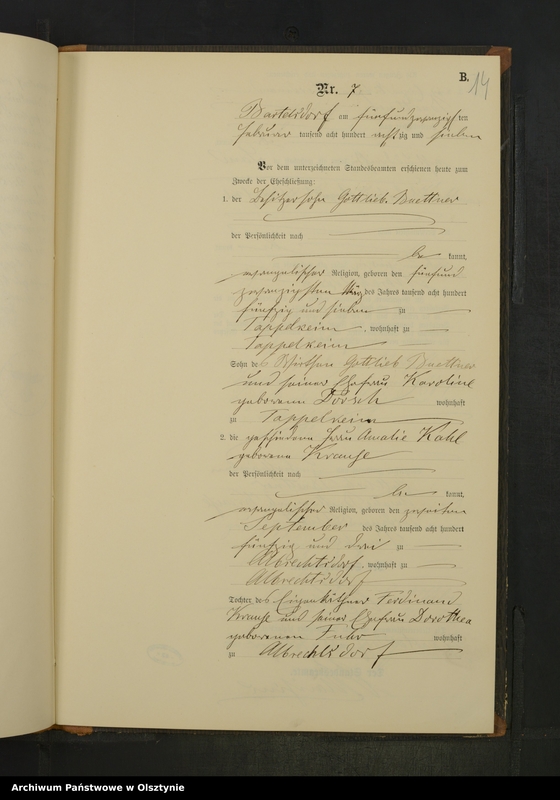 B.
14
Nr. 7
Bartelsdorf am fünfundzwanzigsten
Februar tausend acht hundert achtzig und sieben
Vor dem unterzeichneten Standesbeamten erschienen heute zum
Zwecke der Eheschließung:
1. der Besitzersohn Gottlieb Buettner
der Persönlichkeit nach
be kannt,
evangelischer Religion, geboren den fünfund
zwanzigsten März des Jahres tausend acht hundert
fünfzig und sieben zu
Tappelkeim, wohnhaft zu
Tappelkeim
Sohn des Wirthen Gottlieb Buettner
und seiner Ehefrau Karoline
geborenen Dorsch wohnhaft
zu Tappelkeim
2. die geschiedene Frau Amalie Kahl
geborene Krause
der Persönlichkeit nach
be kannt,
evangelischer Religion, geboren den zweiten
September des Jahres tausend acht hundert
fünfzig und drei zu
Albrechtsdorf, wohnhaft zu
Albrechtsdorf
Tochter des Eigenkäthner Ferdinand
Krause und seiner Ehefrau Dorothea
geborenen Fuhr wohnhaft
zu Albrechtsdorf
Archiwum Państwowe w Olsztynie